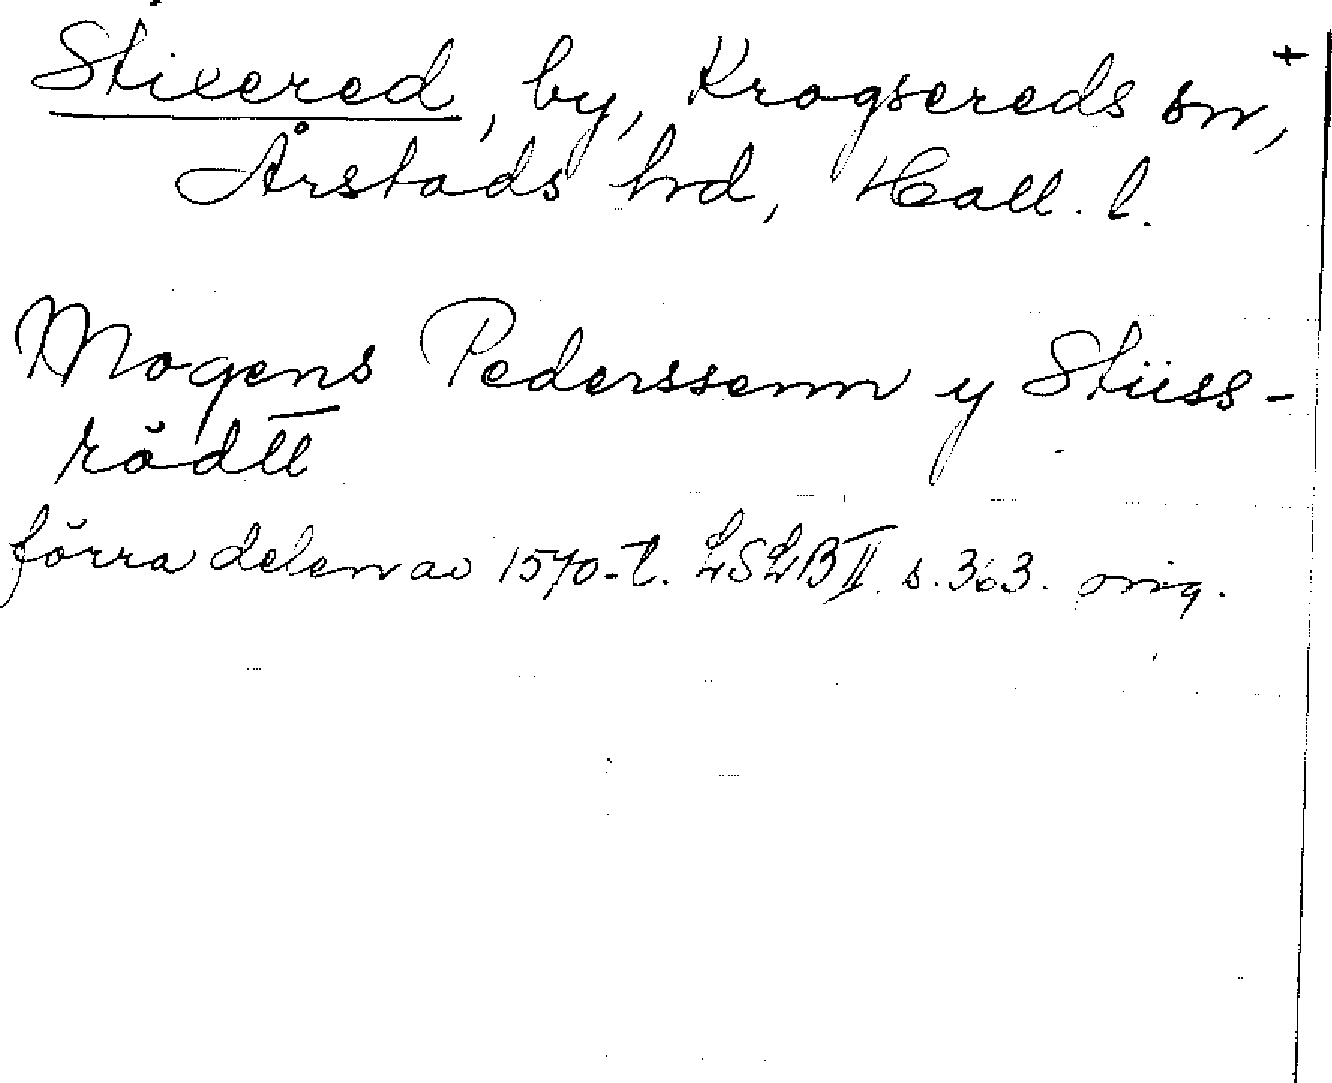 Stixered, by, Krogsereds sn, +
Årstads hrd, Hall. l.
Mogens Pederssenn y Stiiss-
rödtt
förra delen av 1570-t. LSLB II. s. 363. orig.